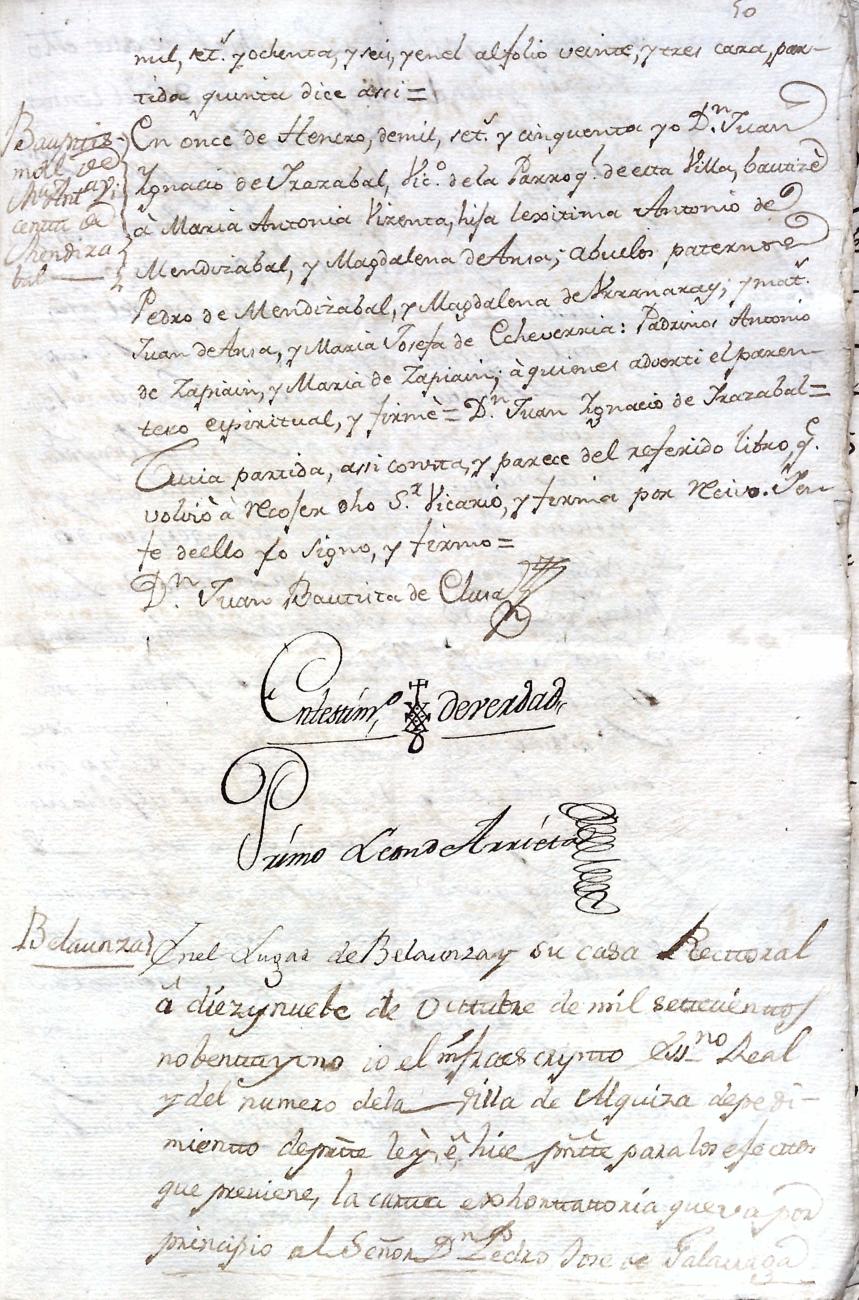 50
mil, set.ˢ y ochenta, y seis, y en el al folio veinte, y tres cara, par-
tida quinta dice assi =
Bauptis-
mal de
Mª Antª Vi-
centa de
Mendiza
bal
En once de Henero, de mil, set.ˢ y cinquenta yo D.ⁿ Juan
Ygnacio de Yrazabal, Vic.º de la Parroq.l de esta Villa, bautizè
à Maria Antonia Vizenta, hija lexitima Antonio de
Mendizabal, y Magdalena de Ansa; abuelos paternos
Pedro de Mendizabal, y Magdalena de Arranaray; y mat.ˢ
Juan de Ansa, y Maria Josefa de Echeverria: Padrinos Antonio
de Zapiain, y Maria de Zapiain; à quienes adverti el paren-
tesco espiritual, y firmè = D.ⁿ Juan Ygnacio de Yrazabal =
Cuia partida, assi consta, y parece del referido libro, q.ᵉ
volviò à recojer dho S.ʳ Vicario, y firma por recivo. Yen
fe de ello yo signo, y firmo =
D.ⁿ Juan Bautista de Elusa
En testim.º de verdad
Primo Leon de Arrieta
Belaunza
En el Lugar de Belaunza y su casa Rectoral
â diez y nuebe de Octtubre de mil settecienttos
nobentta y uno io el infraescriptto Ess.no Real
y del numero de la Villa de Alquiza de pedi-
mientto de partte leỳ, ê, hice pres.tte para los efecttos
que previene, la cartta exhorttattoria que va por
principio al Señor D.n Pedro Jose de Galarraga